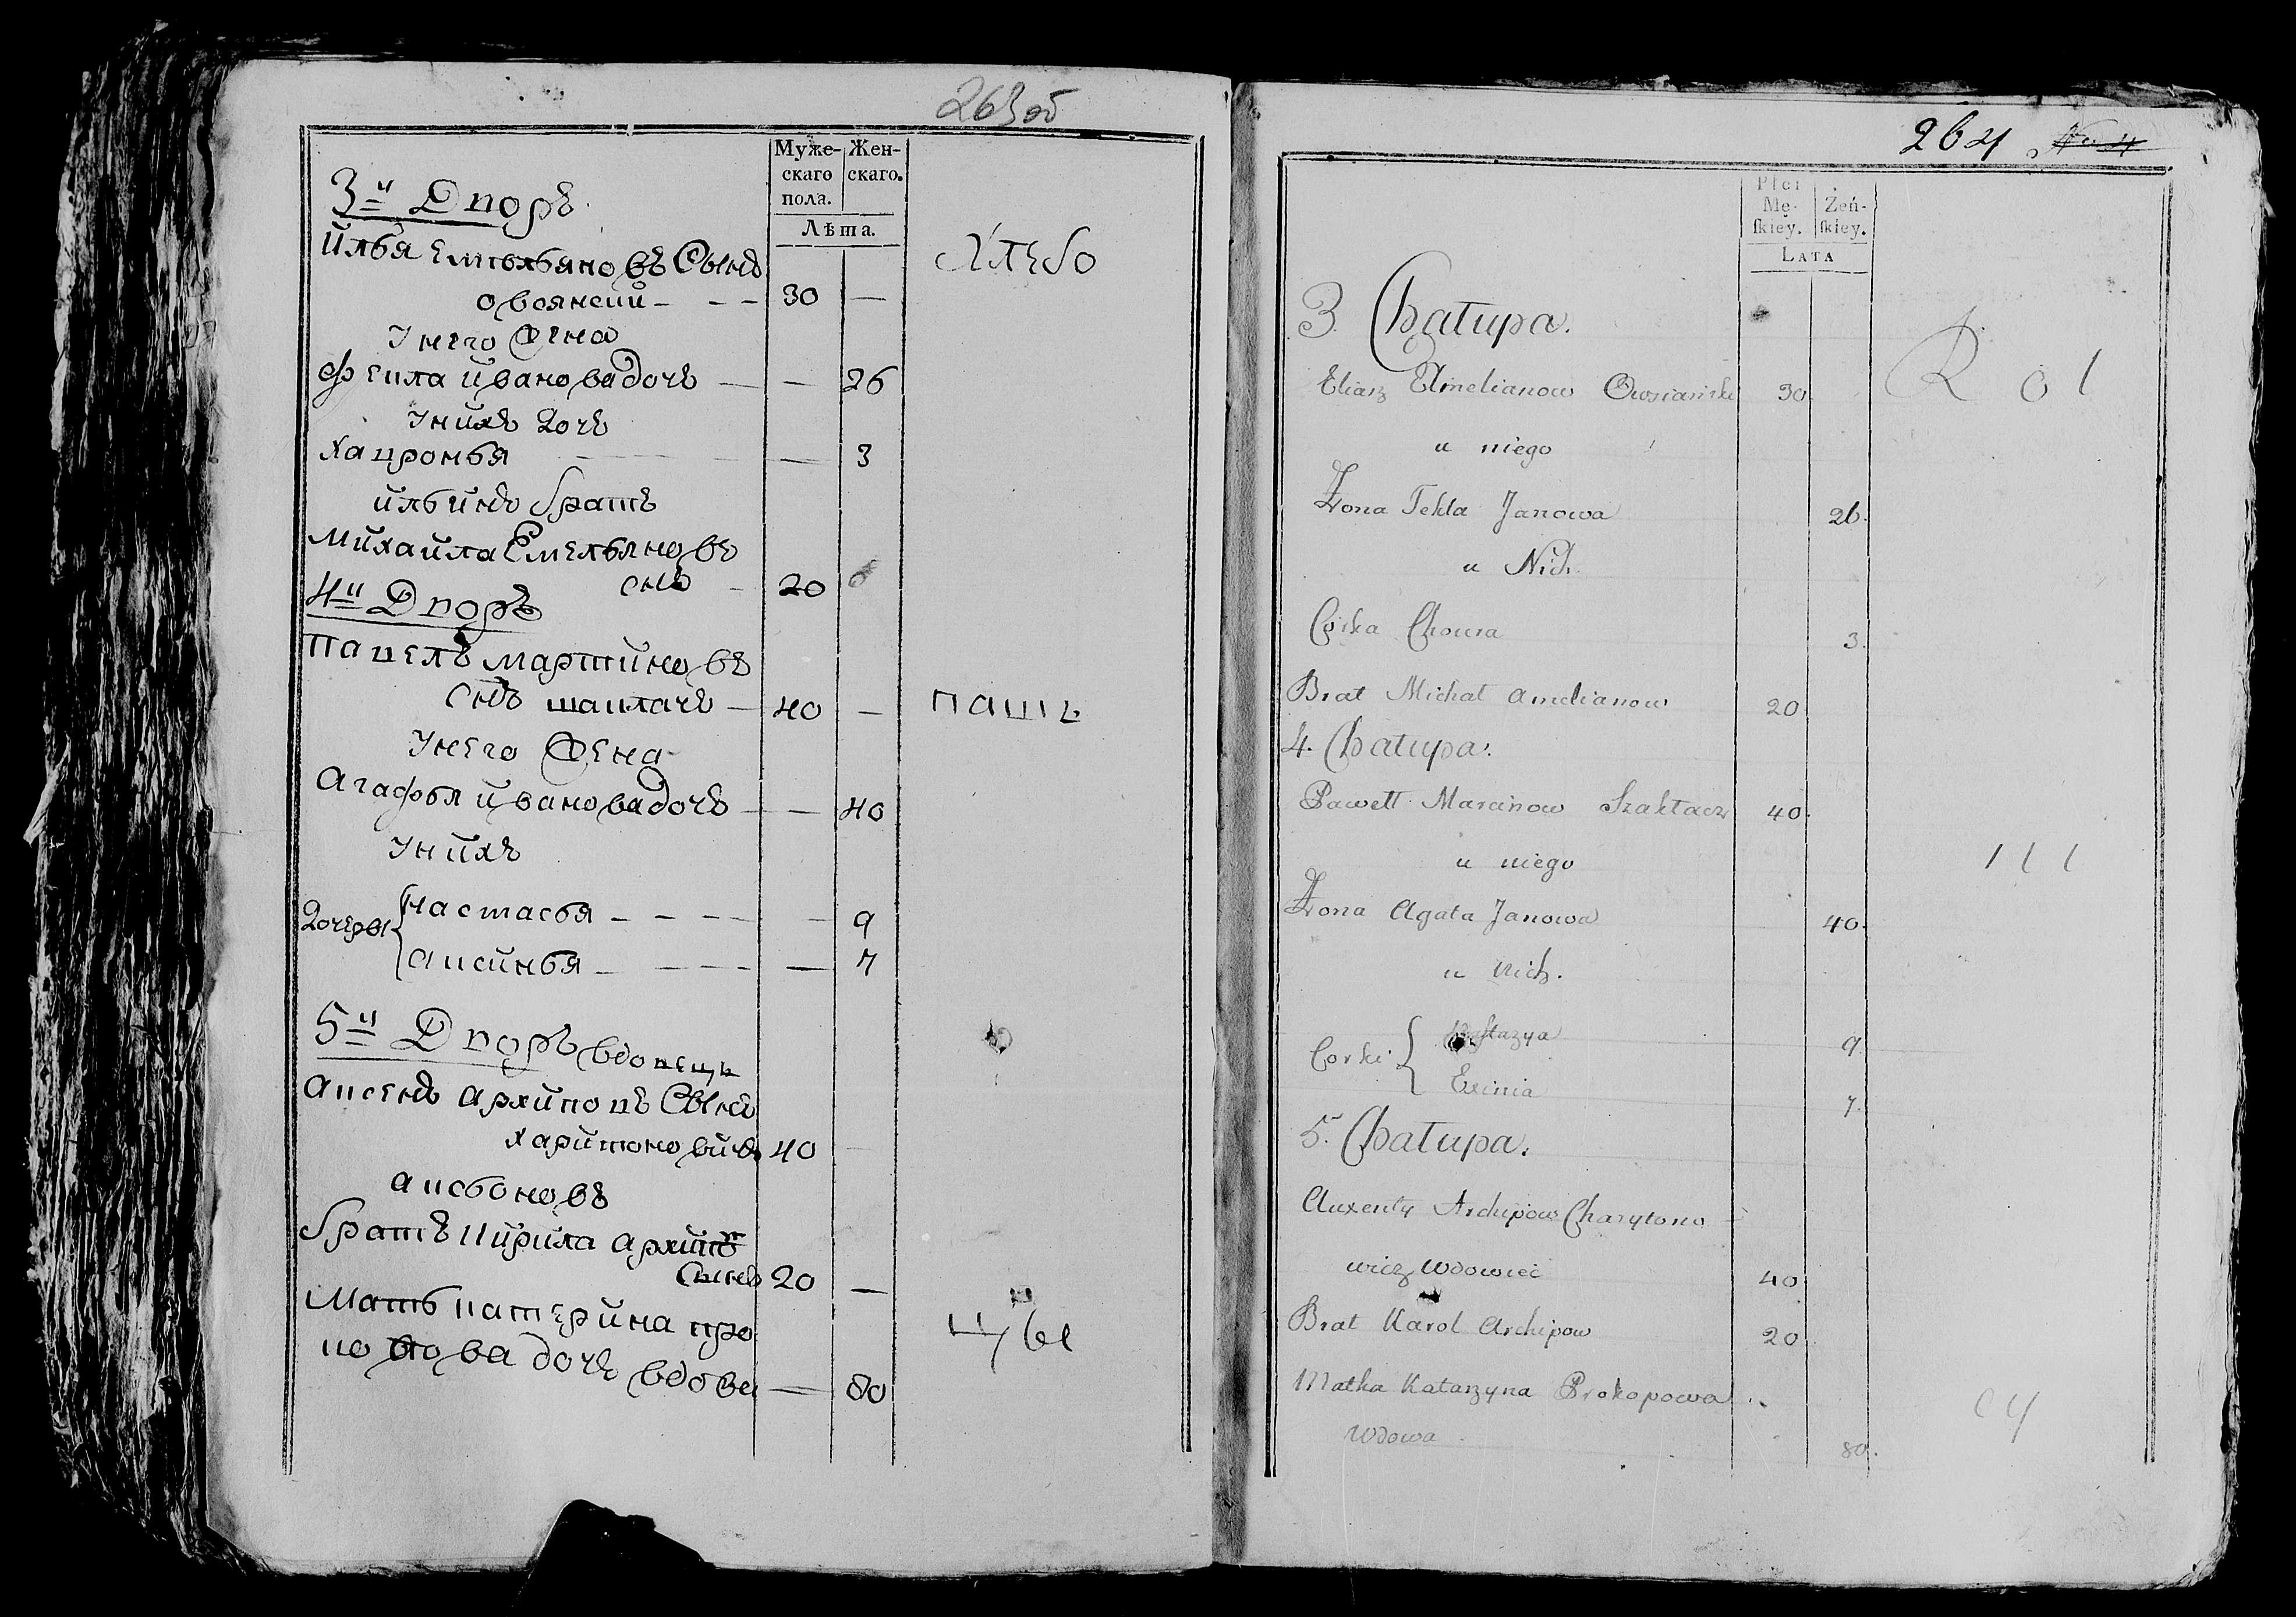 263 об
Муже-
скаго
пола.
Жен-
скаго.
Лѣта.
3й Дворъ
Илья Емельяновъ Сынъ
Овсянский 30 —
У него Жена
Фекла Иванова дочь — — 26
У нихъ дочь
Хавронья — 3
Ильинъ Братъ
Михайла Емельяновъ
снъ 20
4й Дворъ
Павелъ Мартиновъ
снъ шаклачъ — 40 —
У него Жена
Агафья Иванова дочь — — 40
У нихъ
дочеры { Настасья — 9
Аксинья — 7
5й Дворъ вдовецъ
Аксенъ Архиповъ Сынъ
Харитоновичъ 40
Аксеновъ
Братъ Кирила Архипов
Сынъ 20 —
Мать Катерина Про
копова дочь вдова — 80
Хлебо
паш
цы
264
Płci
Mę-
ſkiey.
Żeń-
ſkiey.
LATA
3. Chałupa.
Eliasz Emelianow Owsianski 30
u niego
Żona Tekla Janowa 26.
u Nich.
Córka Chowra 3.
Brat Michał Amelianow 20
4. Chałupa.
Pawełł Marcinow Szakłacz 40.
u niego
Żona Agata Janowa 40.
u Nich.
Corki { Nastazya 9
Exinia 7.
5. Chałupa.
Auxenty Archipow Charytono-
wicz Wdowiec 40
Brat Karol Archipow 20
Matka Katarzyna Prokopowa
Wdowa 80.
Rol